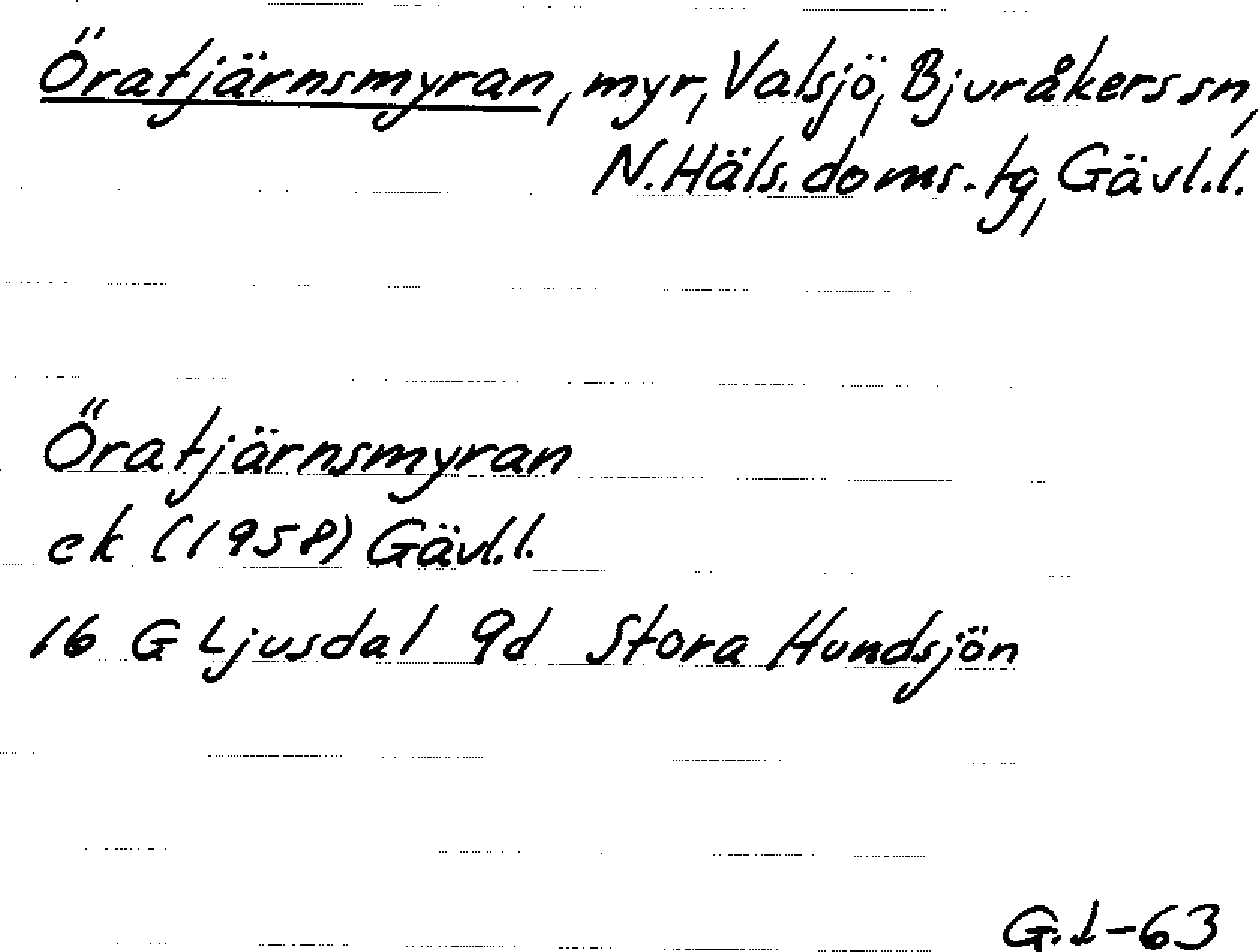 Öratjärnsmyran, myr, Valsjö, Bjuråkers sn,
N. Häls. doms. tg, Gävl.l.
Öratjärnsmyran
ek (1958) Gävl.l.
16 G Ljusdal 9d Stora Hundsjön
G.L-63